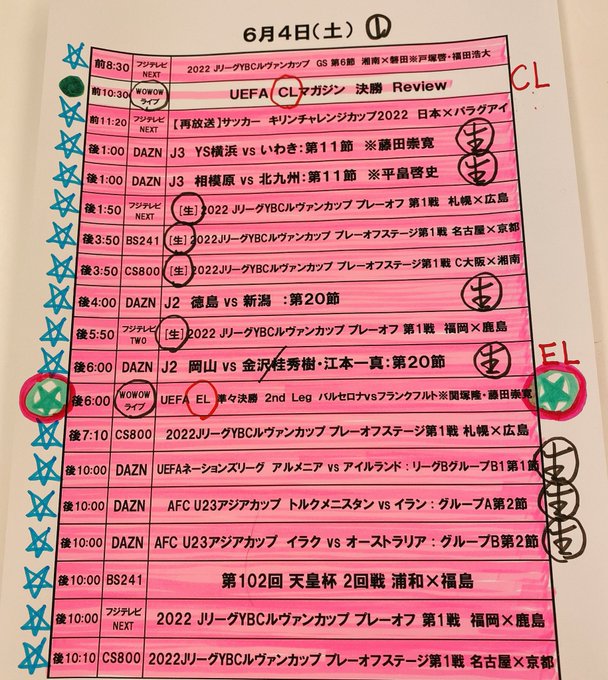 6月4日(土) ①
CL
前8:30 フジテレビNEXT 2022 JリーグYBCルヴァンカップ GS 第6節 湘南×磐田※戸塚啓・福田浩大
前10:30 WOWOWライブ UEFA CLマガジン 決勝 Review
前11:20 フジテレビNEXT 【再放送】サッカー キリンチャレンジカップ2022 日本×パラグアイ
後1:00 DAZN J3 YS横浜 vs いわき:第11節 ※藤田崇寛 生
後1:00 DAZN J3 相模原 vs 北九州:第11節 ※平畠啓史 生
後1:50 フジテレビNEXT [生]2022 JリーグYBCルヴァンカップ プレーオフ 第1戦 札幌×広島
後3:50 BS241 [生]2022JリーグYBCルヴァンカップ プレーオフステージ第1戦 名古屋×京都
後3:50 CS800 [生]2022JリーグYBCルヴァンカップ プレーオフステージ第1戦 C大阪×湘南
後4:00 DAZN J2 徳島 vs 新潟 :第20節 生
後5:50 フジテレビTWO [生]2022 JリーグYBCルヴァンカップ プレーオフ 第1戦 福岡×鹿島
EL
後6:00 DAZN J2 岡山 vs 金沢/桂秀樹・江本一真:第20節 生
後6:00 WOWOWライブ UEFA EL 準々決勝 2nd Leg バルセロナvsフランクフルト※関塚隆・藤田崇寛
後7:10 CS800 2022JリーグYBCルヴァンカップ プレーオフステージ第1戦 札幌×広島
後10:00 DAZN UEFAネーションズリーグ アルメニア vs アイルランド:リーグBグループB1第1節 生
後10:00 DAZN AFC U23アジアカップ トルクメニスタン vs イラン:グループA第2節 生
後10:00 DAZN AFC U23アジアカップ イラク vs オーストラリア:グループB第2節 生
後10:00 BS241 第102回 天皇杯 2回戦 浦和×福島
後10:00 フジテレビNEXT 2022 JリーグYBCルヴァンカップ プレーオフ 第1戦 福岡×鹿島
後10:10 CS800 2022JリーグYBCルヴァンカップ プレーオフステージ第1戦 名古屋×京都